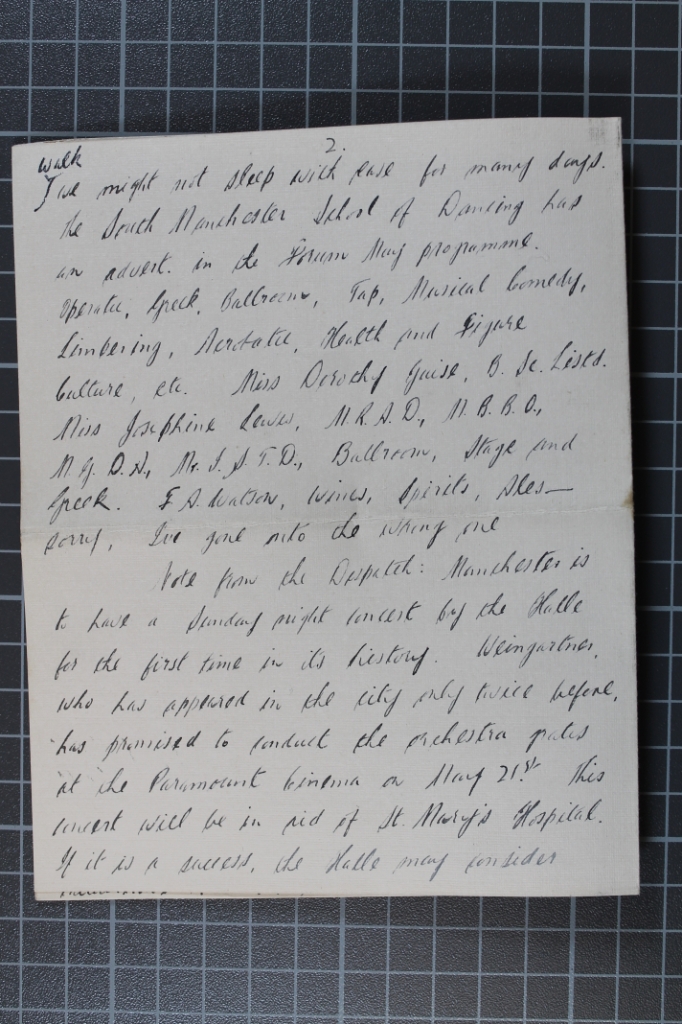 2.
walk
I we might not sleep with ease for many days.
The South Manchester School of Dancing has
an advert. in the Forum May programme.
Operatic, Greek, Ballroom, Tap, Musical Comedy,
Limbering, Acrobatic, Health and Figure
Culture, etc. Miss Dorothy Guise, B. Sc. Listd.
Miss Josephine Lewis, M.R.A.D., M.B.B.O.,
M.G.D.A., M.I.S.T.D., Ballroom, Stage and
Greek. F A. Watson, Wines, Spirits, Ales—
sorry, I've gone onto the wrong one
Note from the Despatch: Manchester is
to have a Sunday night concert by the Halle
for the first time in its history. Weingartner,
who has appeared in the city only twice before,
has promised to conduct the orchestra gratis
at the Paramount Cinema on May 21st. This
concert will be in aid of St. Mary's Hospital.
If it is a success, the Halle may consider